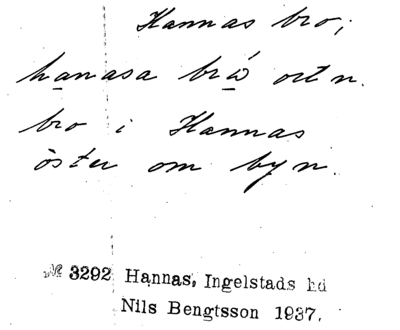 Hannas bro;
hanasa bró ortn.
bro i Hannas
öster om byn.
№ 3292 Hannas, Ingelstads hd
Nils Bengtsson 1937.